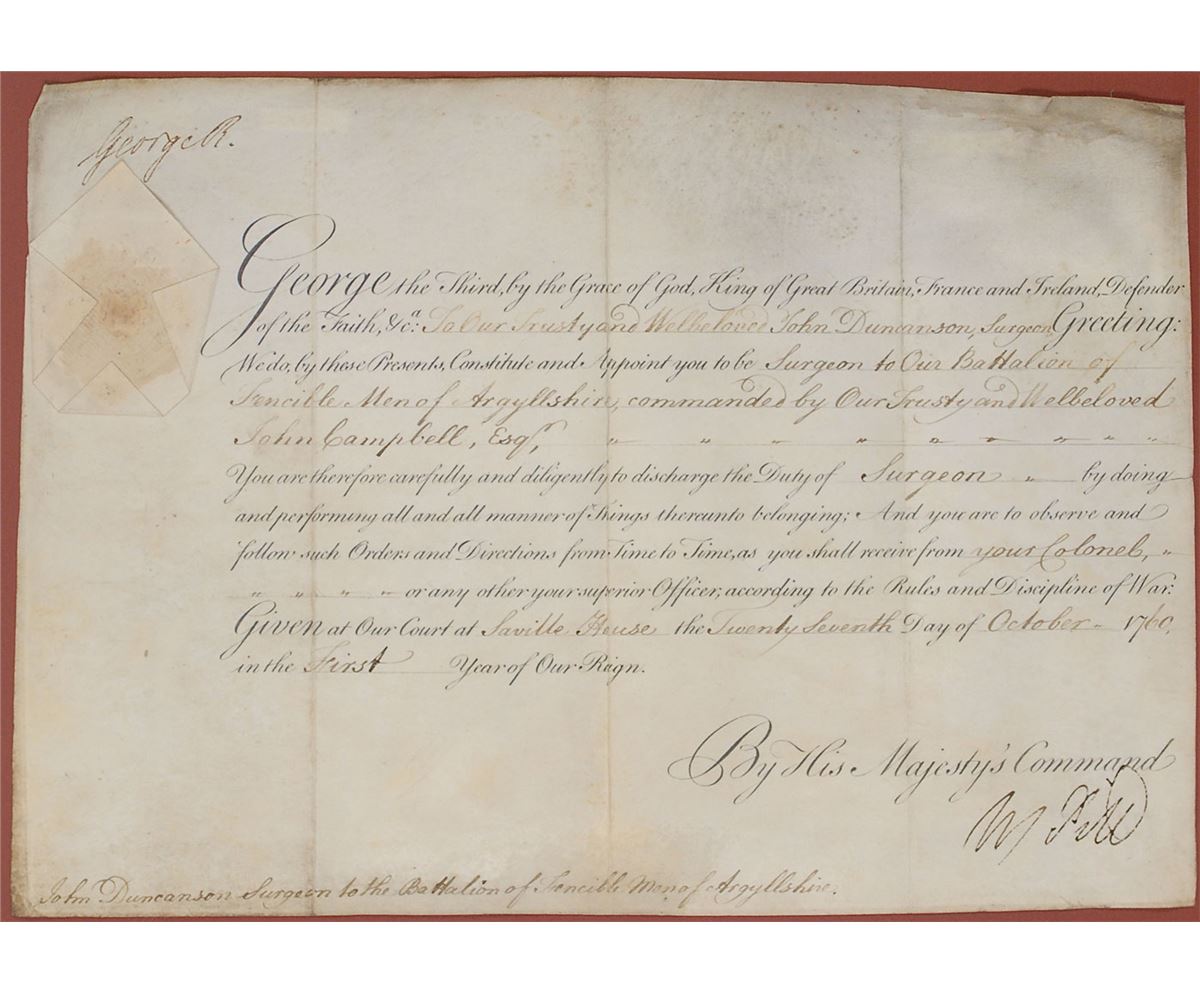 George R.
George the Third, by the Grace of God, King of Great Britain, France and Ireland, Defender
of the Faith, &c.a: To Our Trusty and Welbeloved John Duncanson, Surgeon, Greeting:
We do, by these Presents, Constitute and Appoint you to be Surgeon to Our Battalion of
Fencible Men of Argyllshire, commanded by Our Trusty and Welbeloved
John Campbell, Esqr, " " " " " " " " "
You are therefore carefully and diligently to discharge the Duty of Surgeon " by doing
and performing all and all manner of Things thereunto belonging; And you are to observe and
follow such Orders and Directions from Time to Time, as you shall receive from your Colonel, "
" " " " or any other your superior Officer, according to the Rules and Discipline of War.
Given at Our Court at Saville House the Twenty Seventh Day of October " 1760,
in the First Year of Our Reign.
By His Majesty's Command
W Pitt
John Duncanson Surgeon to the Battalion of Fencible Men of Argyllshire.